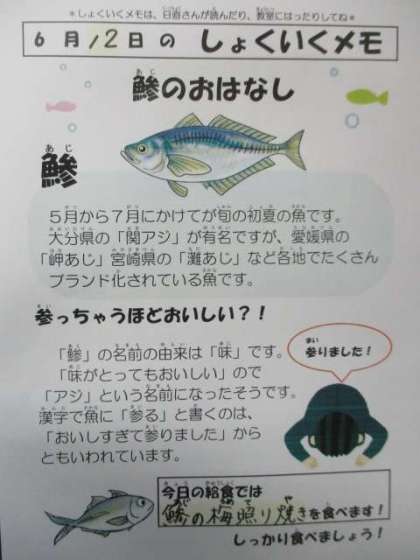 ＊しょくいくメモは、日直さんが読んだり、教室にはったりしてね＊
6月12日のしょくいくメモ
鯵のおはなし
鯵
５月から７月にかけてが旬の初夏の魚です。
大分県の「関アジ」が有名ですが、愛媛県の
「岬あじ」宮崎県の「灘あじ」など各地でたくさん
ブランド化されている魚です。
参っちゃうほどおいしい？！
参りました！
「鯵」の名前の由来は「味」です。
「味がとってもおいしい」ので
「アジ」という名前になったそうです。
漢字で魚に「参る」と書くのは、
「おいしすぎて参りました」から
ともいわれています。
今日の給食では
鯵の梅照り焼きを食べます！
しっかり食べましょう！